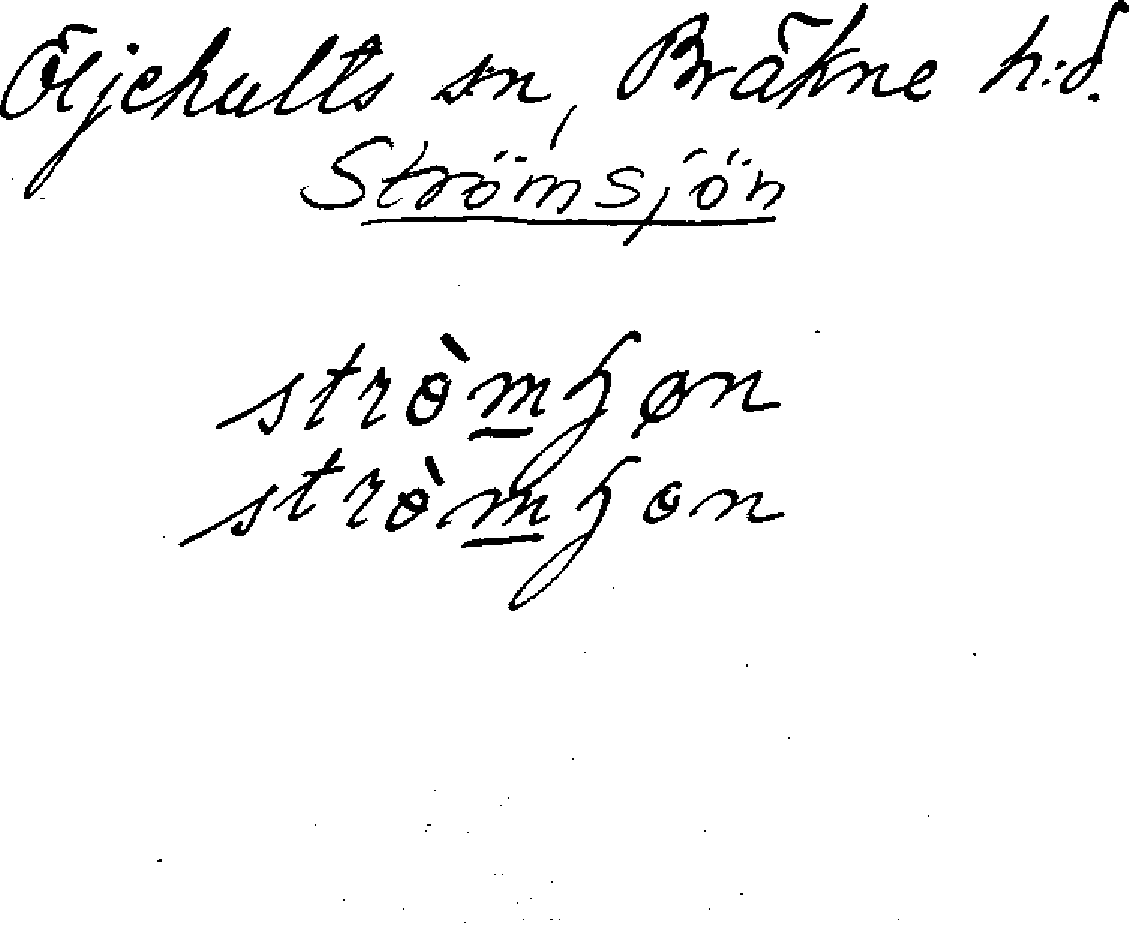 Öljehults sn, Bräkne h:d.
Strömsjön
strò̀mɧøn
strò̀mɧon